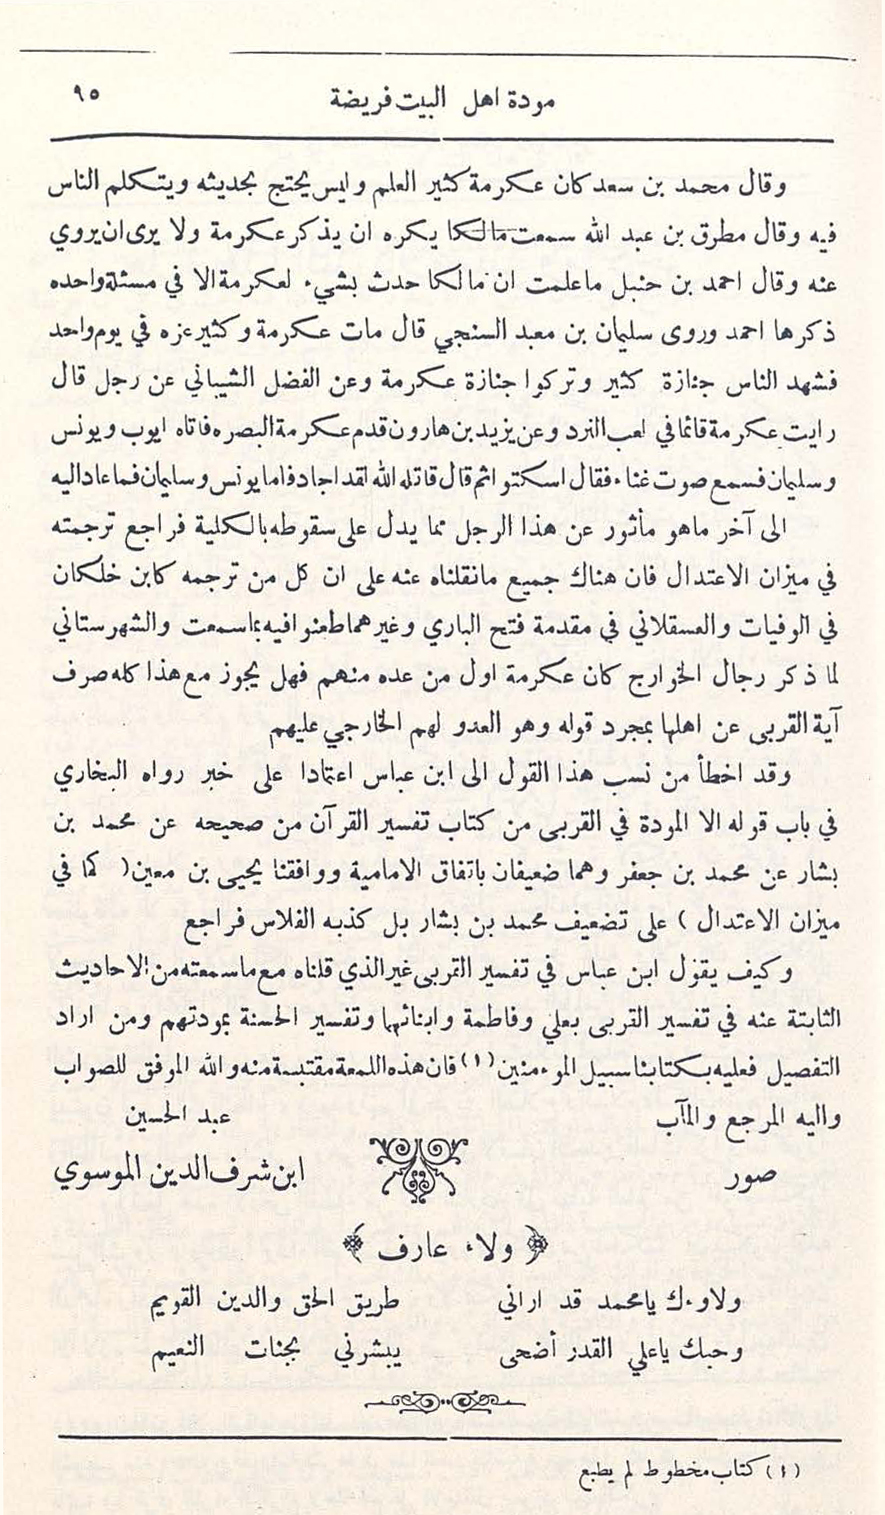 مودة اهل البيت فريضة ٩٥
وقال محمد بن سعد كان عكرمة كثير العلم وليس يحتج بحديثه ويتكلم الناس
فيه وقال مطرق بن عبد الله سمعت مالكا يكره ان يذكر عكرمة ولا يرى ان يروي
عنه وقال احمد بن حنبل ماعلمت ان مالكا حدث بشيء لعكرمة الا في مسئلة واحده
ذكرها احمد وروى سليمان بن معبد السنجي قال مات عكرمة وكثير عزه في يوم واحد
فشهد الناس جنازة كثير وتركوا جنازة عكرمة وعن الفضل الشيباني عن رجل قال
رايت عكرمة قائما في لعب النرد وعن يزيد بن هارون قدم عكرمة البصره فاتاه ايوب ويونس
وسليمان فسمع صوت غناء فقال اسكتوا ثم قال قاتله الله لقد اجاد فاما يونس وسليمان فما عادا اليه
الى آخر ماهو مأثور عن هذا الرجل مما يدل على سقوطه بالكلية فراجع ترجمته
في ميزان الاعتدال فان هناك جميع مانقلناه عنه على ان كل من ترجمه كابن خلكان
في الوفيات والعسقلاني في مقدمة فتح الباري وغيرهما طعنوا فيه بما سمعت والشهرستاني
لما ذكر رجال الخوارج كان عكرمة اول من عده منهم فهل يجوز مع هذا كله صرف
آية القربى عن اهلها بمجرد قوله وهو العدو لهم الخارجي عليهم
وقد اخطأ من نسب هذا القول الى ابن عباس اعتمادا على خبر رواه البخاري
في باب قوله الا المودة في القربى من كتاب تفسير القرآن من صحيحه عن محمد بن
بشار عن محمد بن جعفر وهما ضعيفان باتفاق الامامية ووافقنا يحيى بن معين ( كما في
ميزان الاعتدال ) على تضعيف محمد بن بشار بل كذبه الفلاس فراجع
وكيف يقول ابن عباس في تفسير القربى غير الذي قلناه مع ماسمعته من الاحاديث
الثابتة عنه في تفسير القربى بعلي وفاطمة وابنائهما وتفسير الحسنة بمودتهم ومن اراد
التفصيل فعليه بكتابنا سبيل الموءمنين (١) فان هذه اللمعة مقتبسة منه والله الموفق للصواب
واليه المرجع والمآب عبد الحسين
صور ابن شرف الدين الموسوي
ولاء عارف
ولاوءك يامحمد قد اراني طريق الحق والدين القويم
وحبك ياعلي القدر أضحى يبشرني بجنات النعيم
(١) كتاب مخطوط لم يطبع